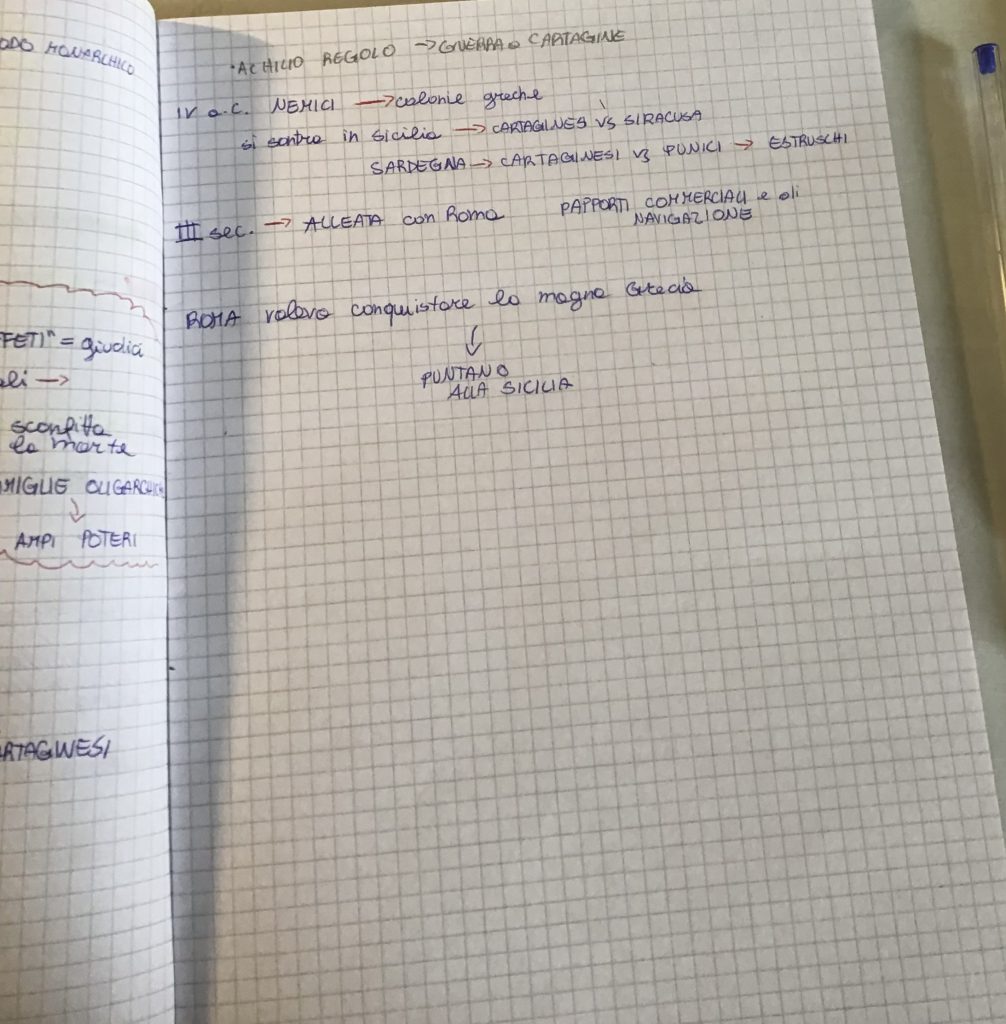 ODO MONARCHICO
FETI" = giudici
eli →
sconfitta
la morte
MIGLIE OLIGARCHICHE
↓
AMPI POTERI
RTAGINESI
• ACHILIO REGOLO → GUERRA a CARTAGINE
IV a.C. NEMICI → colonie greche
si scontra in Sicilia → CARTAGINESI VS SIRACUSA
SARDEGNA → CARTAGINESI VS PUNICI → ESTRUSCHI
III sec. → ALLEATA con Roma PAPPORTI COMMERCIALI e di
NAVIGAZIONE
ROMA voleva conquistare la magna Grecia
↓
PUNTANO
ALLA SICILIA